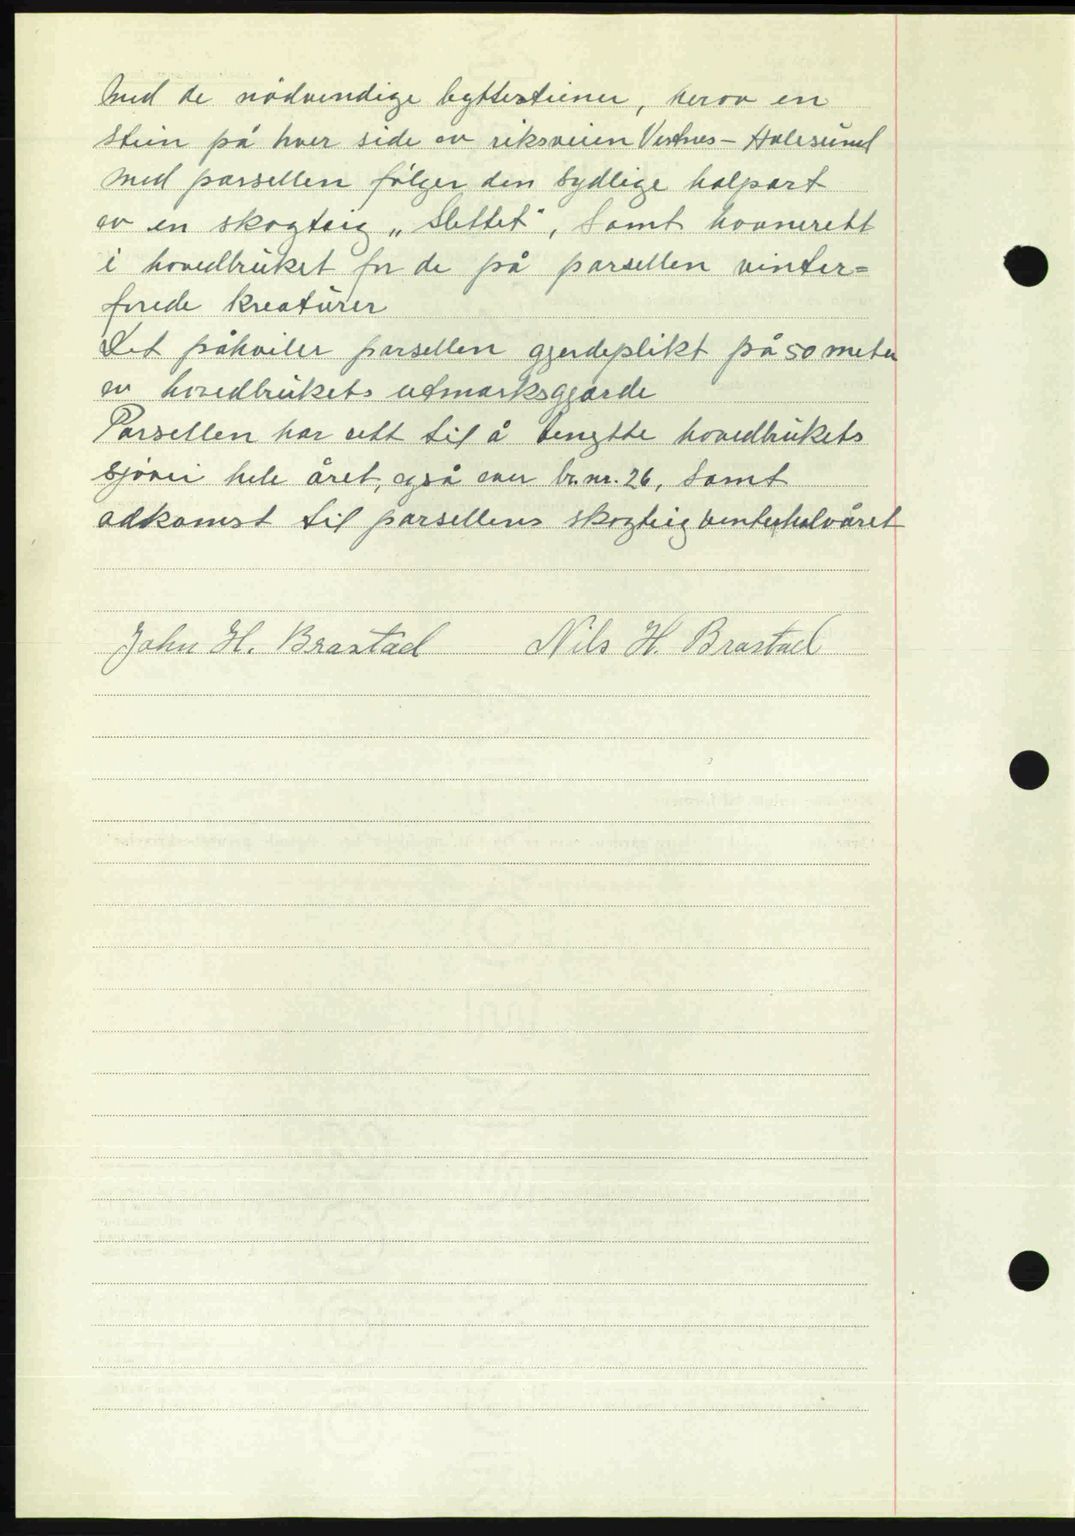 med de nødvendige byttesteiner, herav en
stein på hver side av riksveien Vestnes - Ålesund
Med parsellen følger den sydlige halpart
av en skogteig „Slettet", samt havnerett
i hovedbruket for de på parsellen vinter=
forede kreaturer
Det påhviler parsellen gjerdeplikt på 50 meter
av hovedbrukets utmarksgjærde
Parsellen har rett til å benytte hovedbrukets
sjøvei hele året, også over br.nr. 26, samt
adkomst til parsellens skogteig vinterhalvåret
John H. Brastad Nils H. Brastad